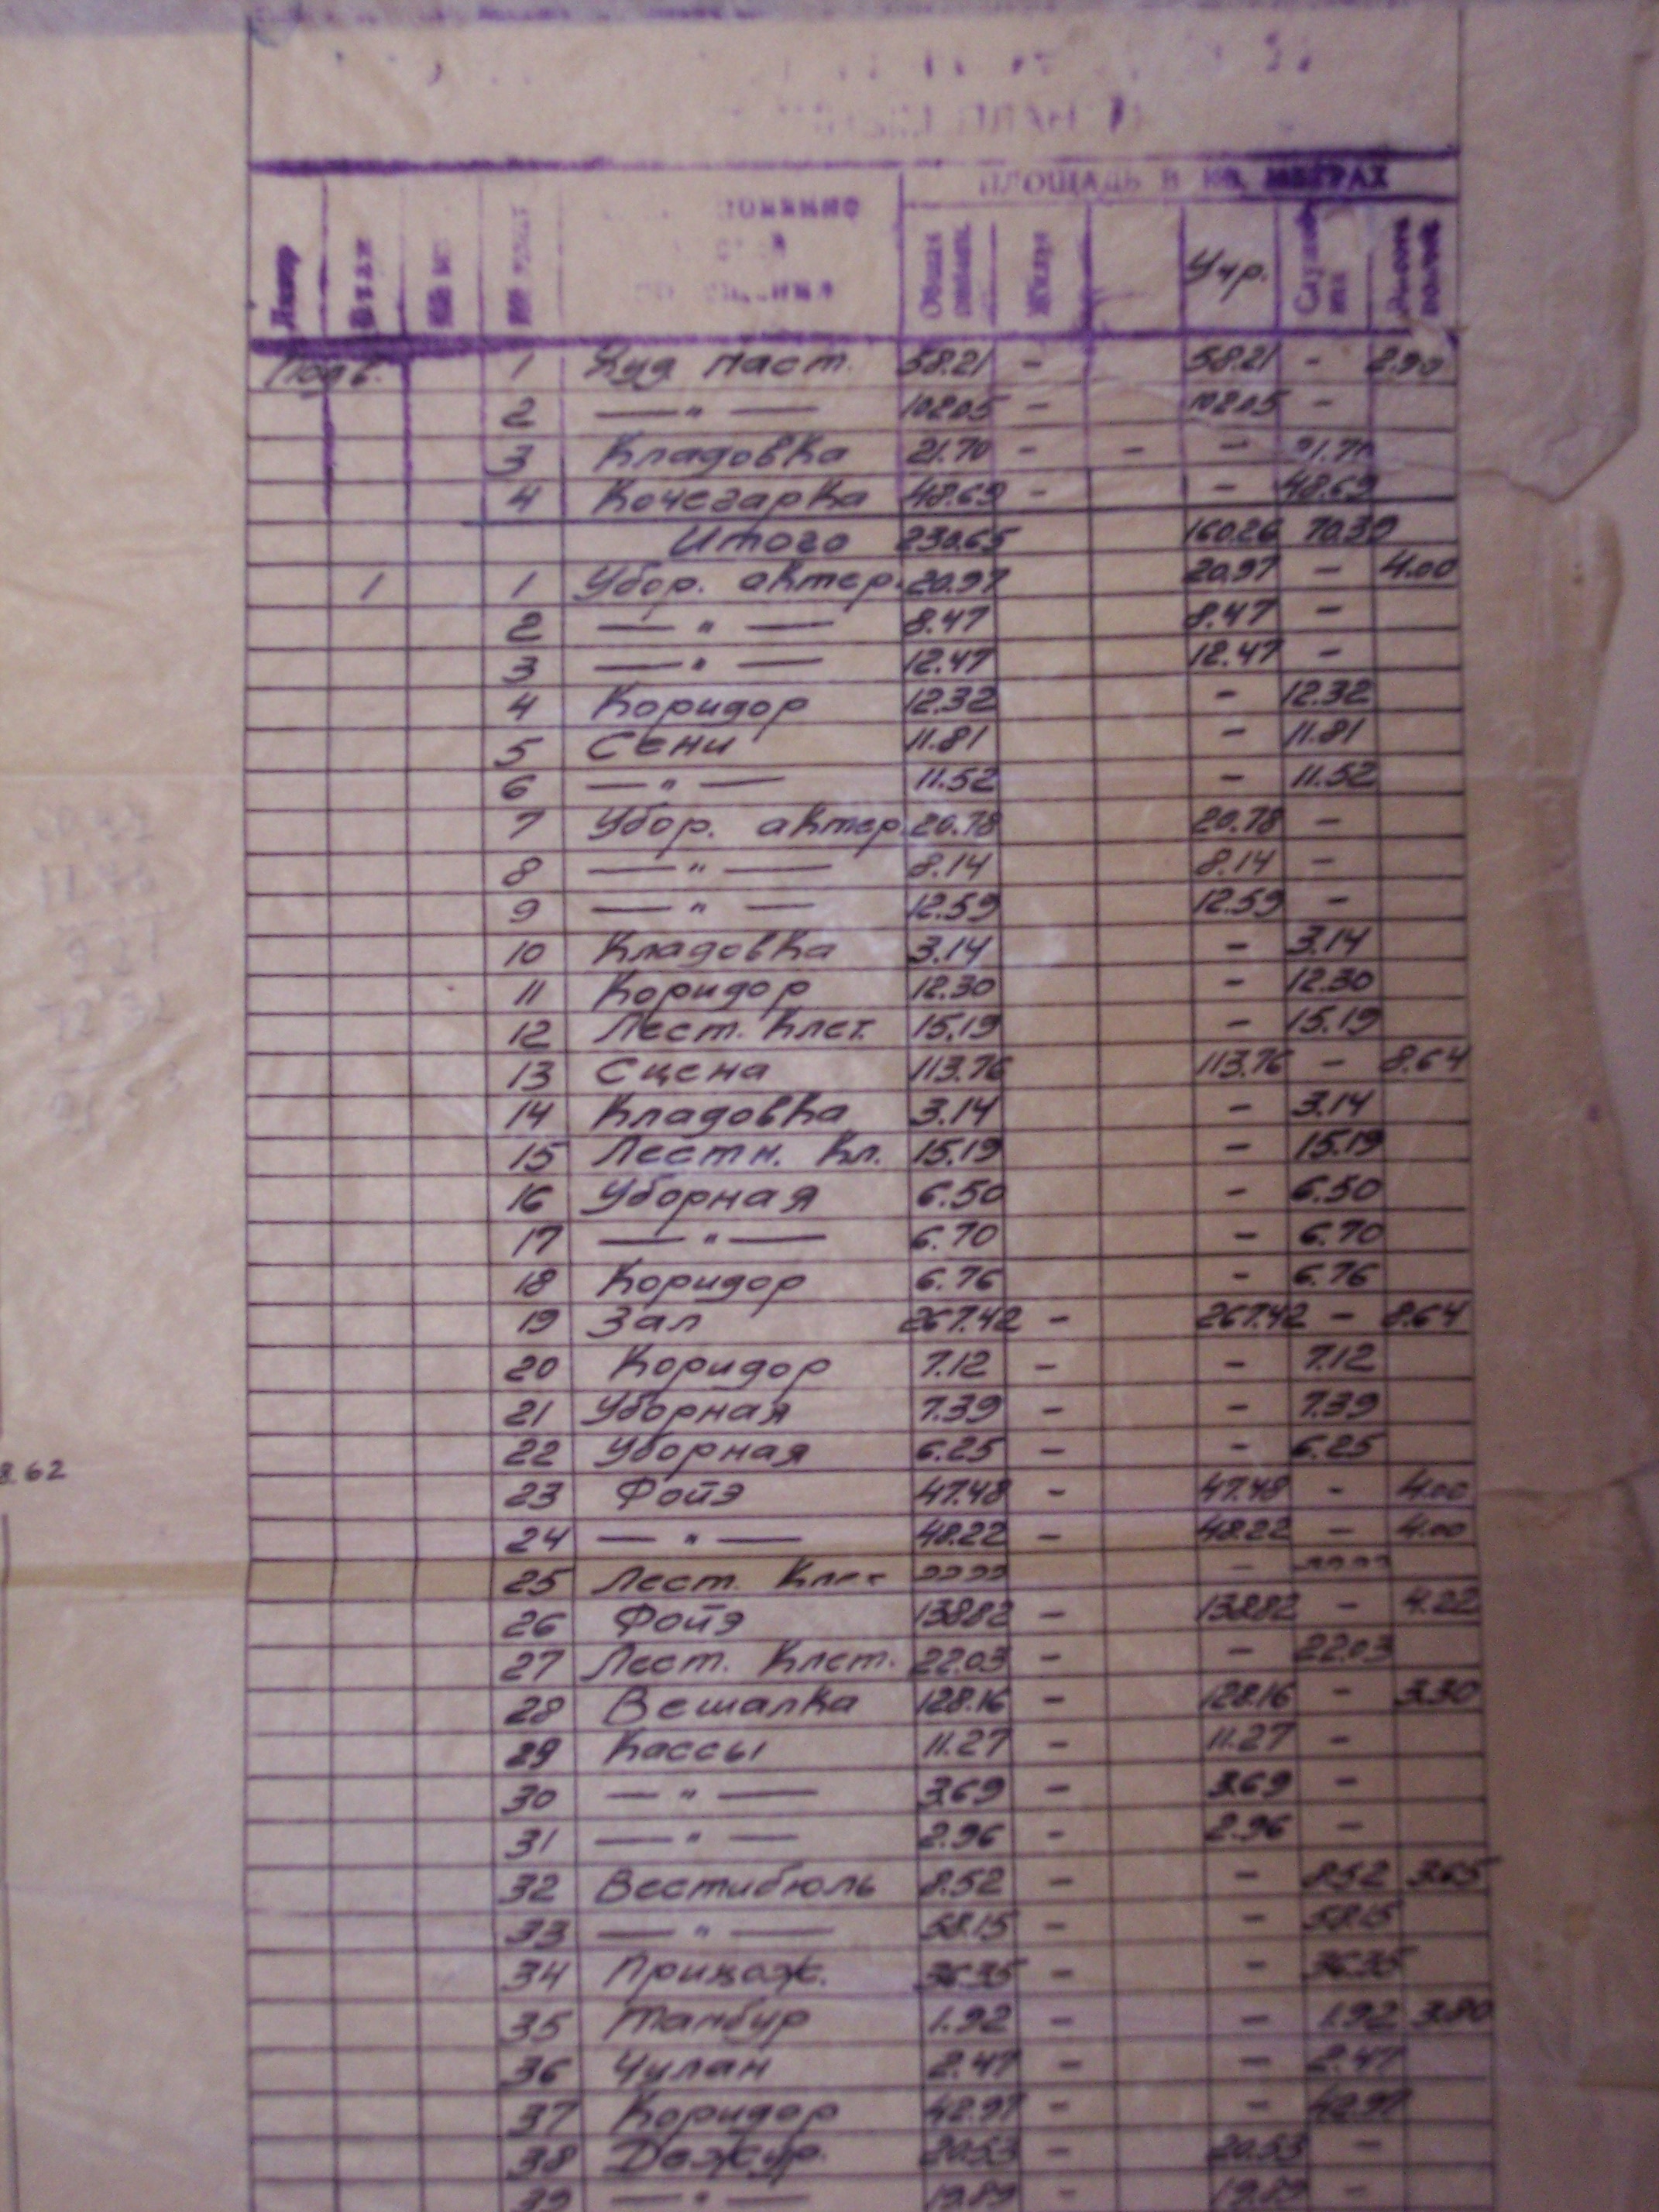 ПЛОЩАДЬ В КВ. МЕТРАХ
Литер Общая Жилая Учр.
Подв. 1 Худ маст. 58.21 - 58.21 - 2.90
2 — " — 102.05 - 102.05 -
3 Кладовка 21.70 - - - 21.70
4 Кочегарка 48.69 - - 48.69
Итого 230.65 160.26 70.39
1 1 Убор. актер. 20.97 20.97 - 4.00
2 — " — 8.47 8.47 -
3 — " — 12.47 12.47 -
4 Коридор 12.32 - 12.32
5 Сени 11.81 - 11.81
6 — " — 11.52 - 11.52
7 Убор. актер. 20.78 20.78 -
8 — " — 8.14 8.14 -
9 — " — 12.59 12.59 -
10 Кладовка 3.14 - 3.14
11 Коридор 12.30 - 12.30
12 Лест. Клет. 15.19 - 15.19
13 Сцена 113.76 113.76 - 8.64
14 Кладовка 3.14 - 3.14
15 Лестн. Кл. 15.19 - 15.19
16 Уборная 6.50 - 6.50
17 — " — 6.70 - 6.70
18 Коридор 6.76 - 6.76
19 Зал 267.42 - 267.42 - 8.64
20 Коридор 7.12 - - 7.12
21 Уборная 7.39 - - 7.39
22 Уборная 6.25 - - 6.25
23 Фойэ 47.48 - 47.48 - 4.00
24 — " — 48.22 - 48.22 - 4.00
25 Лест. Клет -
26 Фойэ 138.82 - 138.82 - 4.22
27 Лест. Клет. 22.03 - - 22.03
28 Вешалка 128.16 - 128.16 - 3.30
29 Кассы 11.27 - 11.27 -
30 — " — 3.69 - 3.69 -
31 — " — 2.96 - 2.96 -
32 Вестибюль 8.52 - - 8.52 3.65
33 — " — 58.15 - - 58.15
34 Прихож. 36.35 - - 36.35
35 Тамбур 1.92 - - 1.92 3.80
36 Чулан 2.47 - - 2.47
37 Коридор 42.97 - - 42.97
38 Дежур. 20.53 - 20.53 -
39 — " — 19.89 - 19.89 -
8.62